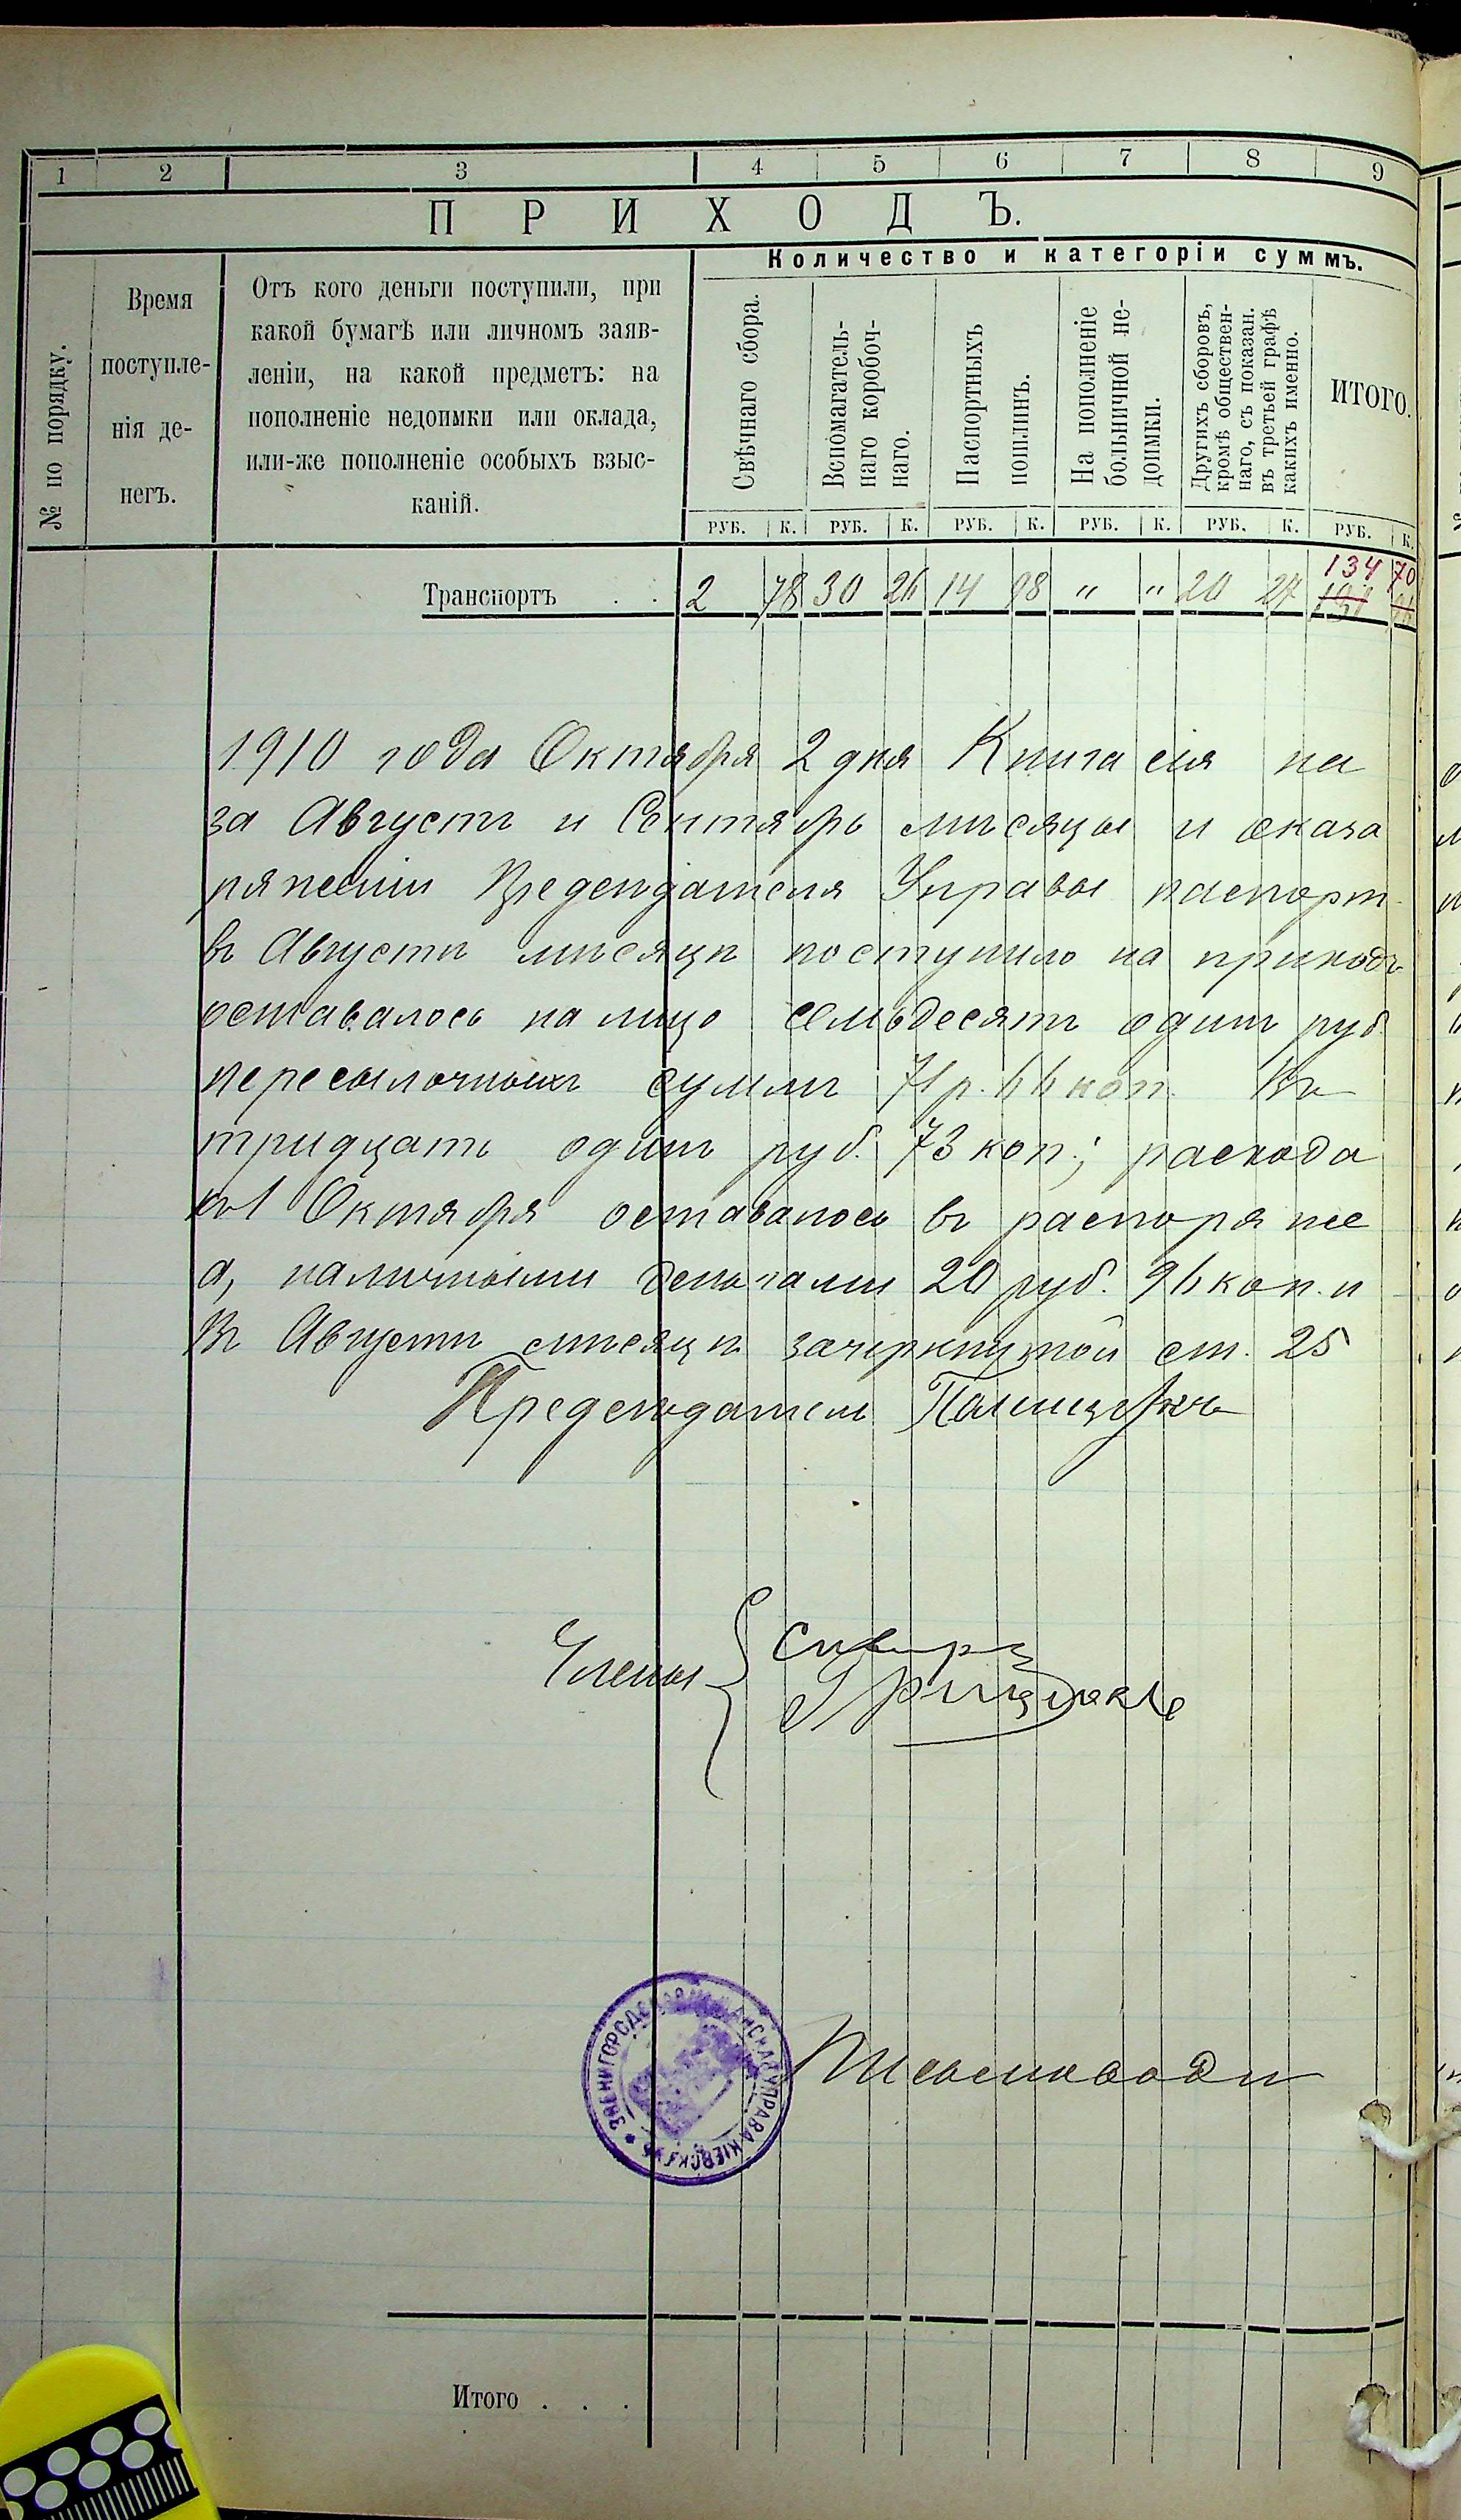 1 2 3 4 5 6 7 8 9
ПРИХОДЪ.
Количество и категоріи суммъ.
№ по порядку.
Время
поступле-
нія де-
негъ.
Отъ кого деньги поступили, при
какой бумагѣ или личномъ заяв-
леніи, на какой предметъ: на
пополненіе недоимки или оклада,
или-же пополненіе особыхъ взыс-
каній.
Свѣчнаго сбора.
Вспомагатель-
наго коробоч-
наго.
Паспортныхъ
пошлинъ.
На пополненіе
больничной не-
доимки.
Другихъ сборовъ,
кромѣ обществен-
наго, съ показан.
въ третьей графѣ
какихъ именно.
ИТОГО.
РУБ. К. РУБ. К. РУБ. К. РУБ. К. РУБ. К. РУБ. К.
134 70
Транспортъ . . 2 78 30 26 14 98 " " 20 27
1910 года Октября 2 дня Книга сія на
за Августъ и Сентябрь мѣсяцы и оказа
ряженіи Предсѣдателя Управы паспорт
въ Августѣ мѣсяцѣ поступило на приходъ
оставалось на лицо семьдесятъ одинъ руб
пересылочныхъ суммъ 71 р. 66 коп. Въ
тридцать одинъ руб. 73 коп.; расхода
къ 1 Октября оставалось въ распоряже
а, наличными деньгами 20 руб. 96 коп. и
Въ Августѣ мѣсяцѣ зачеркнутой ст. 25
Предсѣдатель
Члены
ЗВЕНИГОРОДСКАЯ МѢЩАНСКАЯ УПРАВА КІЕВСК. ГУБ.
Итого . . .